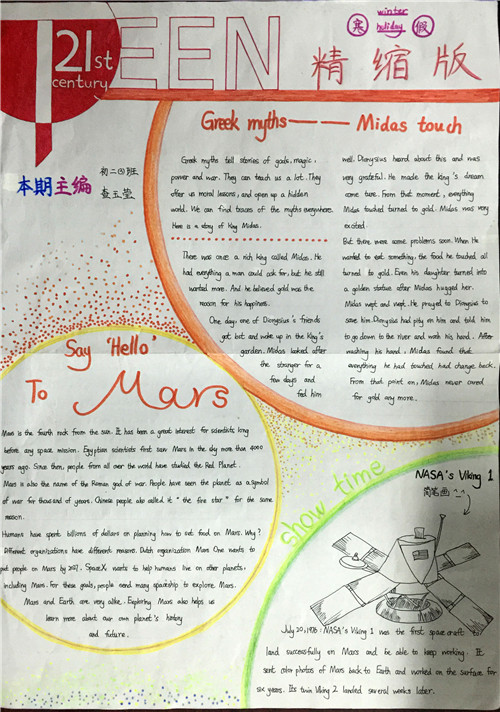 21st
century
TEEN
winter
holiday
寒 假
精缩版
本期主编
初二③班
查玉莹
Greek myths —— Midas touch
Greek myths tell stories of gods, magic,
power and war. They can teach us a lot. They
offer us moral lessons, and open up a hidden
world. We can find traces of the myths everywhere.
Here is a story of King Midas.
There was once a rich king called Midas. He
had everything a man could ask for, but he still
wanted more. And he believed gold was the
reason for his happiness.
One day, one of Dionysius's friends
got lost and woke up in the King's
garden. Midas looked after
the stranger for a
few days and
fed him
well. Dionysius heard about this and was
very grateful. He made the king's dream
come ture. From that moment, everything
Midas touched turned to gold. Midas was very
excited.
But there were some problems soon. When He
wanted to eat something, the food he touched all
turned to gold. Even his daughter turned into
a golden statue after Midas hugged her.
Midas wept and wept. He prayed to Dionysius to
save him. Dionysius had pity on him and told him
to go down to the river and wash his hand. After
washing his hand, Midas found that
everything he had touched had change back.
From that point on, Midas never cared
for gold any more.
Say 'Hello'
To Mars
Mars is the fourth rock from the sun. It has been a great interest for scientists long
before any space mission. Egyptian scientists first saw Mars in the sky more than 4000
years ago. Since then, people from all over the world have studied the Red Planet.
Mars is also the name of the Roman god of war. People have seen the planet as a symbol
of war for thousand of years. Chinese people also called it "the fire star" for the same
reason.
Humans have spent billions of dollars on planning how to set foot on Mars. Why?
Different organizations have different reasons. Dutch organization Mars One wants to
put people on Mars by 2027. SpaceX wants to help humans live on other planets,
including Mars. For these goals, people send many spaceship to explore Mars.
Mars and Earth are very alike. Exploring Mars also helps us
learn more about our own planet's history
and future.
show time
NASA's Viking 1
简笔画
July 20, 1976: NASA's Viking 1 was the first spacecraft to
land successfully on Mars and be able to keep working. It
sent color photos of Mars back to Earth and worked on the surface for
six years. Its twin Viking 2 landed several weeks later.